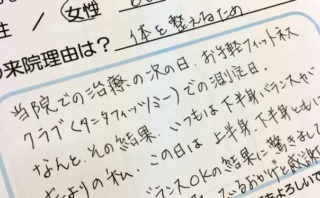 性 / 女性
の来院理由は? 体を整えるため
当院での治療の次の日、お手軽フィットネス
クラブ(タニタフィッツミー)での測定日。
なんと、その結果、いつもは下半身バランスが
よりの私、この日は上半身、下半身ともに
バランスOKの結果に驚きまし
いるおかげと感謝